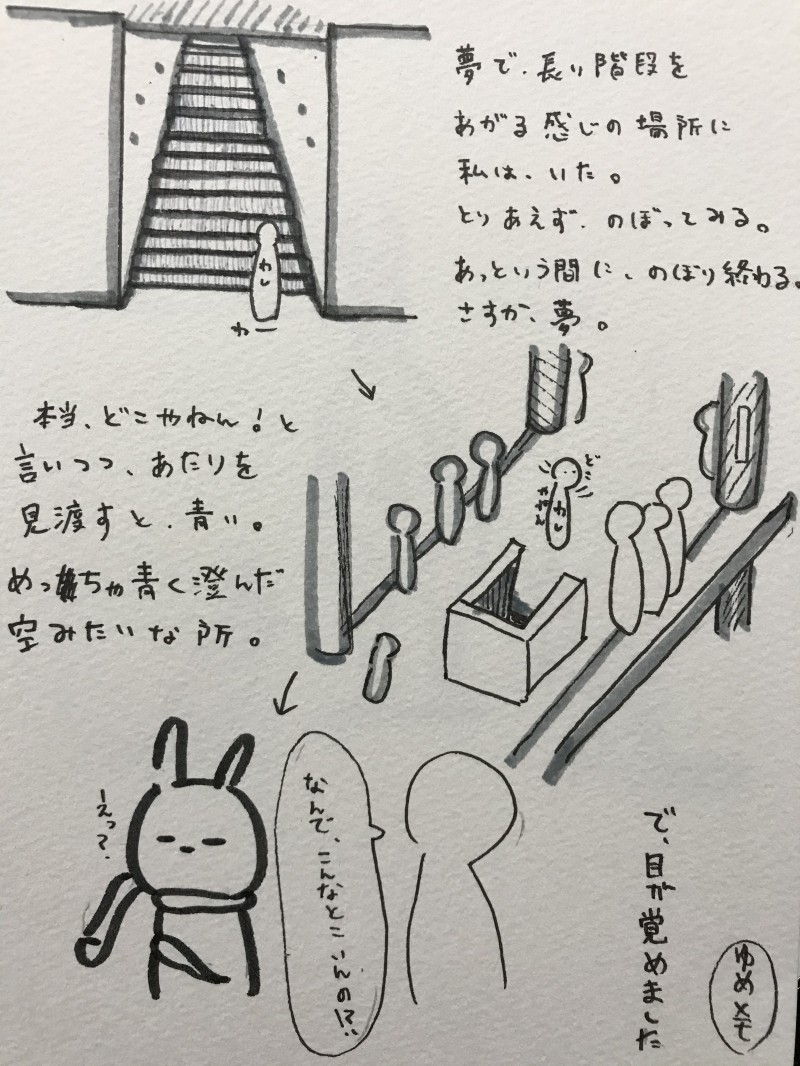 夢で、長い階段を
あがる感じの場所に
私は、いた。
とりあえず、のぼってみる。
あっという間に、のぼり終わる。
さすが、夢。
わし
わー
本当、どこやねん！と
言いつつ、あたりを
見渡すと、青い。
めっちゃ青く澄んだ
空みたいな所。
どこやねん
わし
えっ？
なんで、こんなとこいんの!?
で、目が覚めました
ゆめメモ